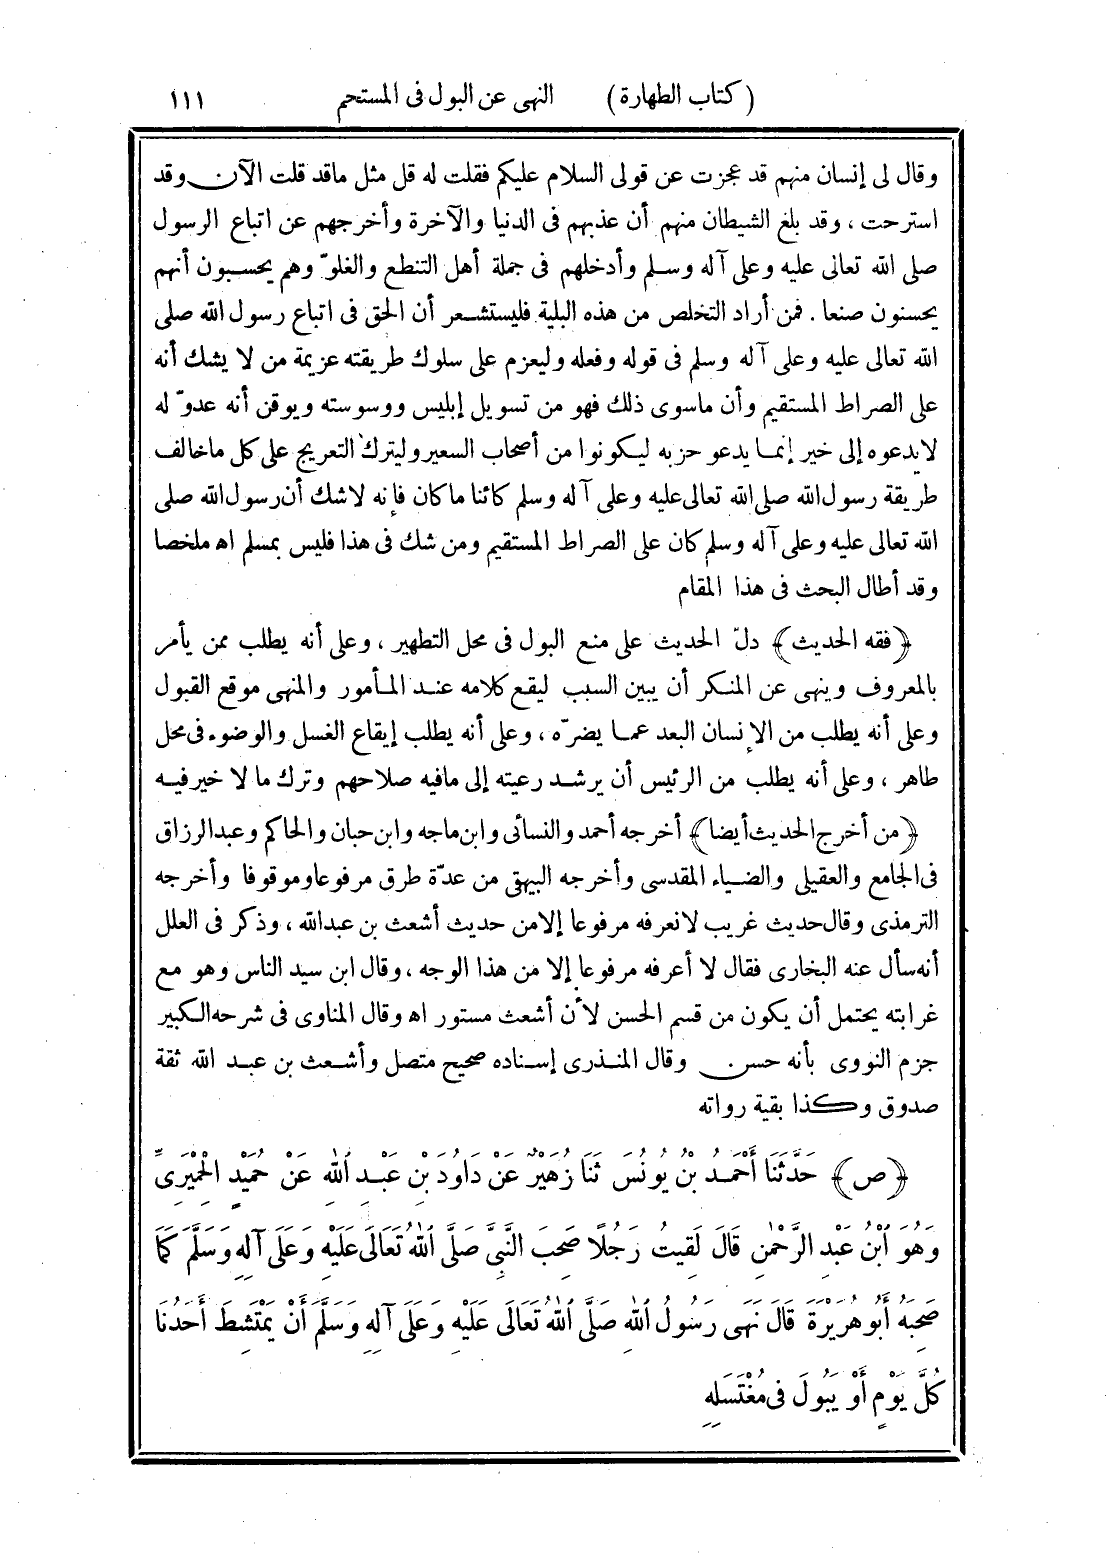 (كتاب الطهارة) النهى عن البول فى المستحم ١١١
وقال لى إنسان منهم قد عجزت عن قولى السلام عليكم فقلت له قل مثل ماقد قلت الآن وقد
استرحت ، وقد بلغ الشيطان منهم أن عذبهم فى الدنيا والآخرة وأخرجهم عن اتباع الرسول
صلى الله تعالى عليه وعلى آله وسلم وأدخلهم فى جملة أهل التنطع والغلوّ وهم يحسبون أنهم
يحسنون صنعا . فمن أراد التخلص من هذه البلية فليستشعر أن الحق فى اتباع رسول الله صلى
الله تعالى عليه وعلى آله وسلم فى قوله وفعله وليعزم على سلوك طريقته عزيمة من لا يشك أنه
على الصراط المستقيم وأن ماسوى ذلك فهو من تسويل إبليس ووسوسته ويوقن أنه عدوّ له
لايدعوه إلى خير إنما يدعو حزبه ليكونوا من أصحاب السعير وليترك التعريج على كل ماخالف
طريقة رسول الله صلى الله تعالى عليه وعلى آله وسلم كائنا ماكان فإنه لاشك أن رسول الله صلى
الله تعالى عليه وعلى آله وسلم كان على الصراط المستقيم ومن شك فى هذا فليس بمسلم اه ملخصا
وقد أطال البحث فى هذا المقام
﴿فقه الحديث﴾ دلّ الحديث على منع البول فى محل التطهير ، وعلى أنه يطلب ممن يأمر
بالمعروف وينهى عن المنكر أن يبين السبب ليقع كلامه عند المأمور والمنهى موقع القبول
وعلى أنه يطلب من الإنسان البعد عما يضرّه ، وعلى أنه يطلب إيقاع الغسل والوضوء فى محل
طاهر ، وعلى أنه يطلب من الرئيس أن يرشد رعيته إلى مافيه صلاحهم وترك ما لا خير فيه
﴿من أخرج الحديث أيضا﴾ أخرجه أحمد والنسائى وابن ماجه وابن حبان والحاكم وعبد الرزاق
فى الجامع والعقيلى والضياء المقدسى وأخرجه البيهقى من عدّة طرق مرفوعا وموقوفا وأخرجه
الترمذى وقال حديث غريب لانعرفه مرفوعا إلا من حديث أشعث بن عبد الله ، وذكر فى العلل
أنه سأل عنه البخارى فقال لا أعرفه مرفوعا إلا من هذا الوجه ، وقال ابن سيد الناس وهو مع
غرابته يحتمل أن يكون من قسم الحسن لأن أشعث مستور اه وقال المناوى فى شرحه الكبير
جزم النووى بأنه حسن وقال المنذرى إسناده صحيح متصل وأشعث بن عبد الله ثقة
صدوق وكذا بقية رواته
﴿ص﴾ حَدَّثَنَا أَحْمَدُ بْنُ يُونُسَ ثَنَا زُهَيْرٌ عَنْ دَاوُدَ بْنِ عَبْدِ اللهِ عَنْ حُمَيْدٍ الْحِمْيَرِىِّ
وَهُوَ ابْنُ عَبْدِ الرَّحْمٰنِ قَالَ لَقِيتُ رَجُلًا صَحِبَ النَّبِىَّ صَلَّى اللهُ تَعَالَى عَلَيْهِ وَعَلَى آلِهِ وَسَلَّمَ كَمَا
صَحِبَهُ أَبُو هُرَيْرَةَ قَالَ نَهَى رَسُولُ اللهِ صَلَّى اللهُ تَعَالَى عَلَيْهِ وَعَلَى آلِهِ وَسَلَّمَ أَنْ يَمْتَشِطَ أَحَدُنَا
كُلَّ يَوْمٍ أَوْ يَبُولَ فِى مُغْتَسَلِهِ